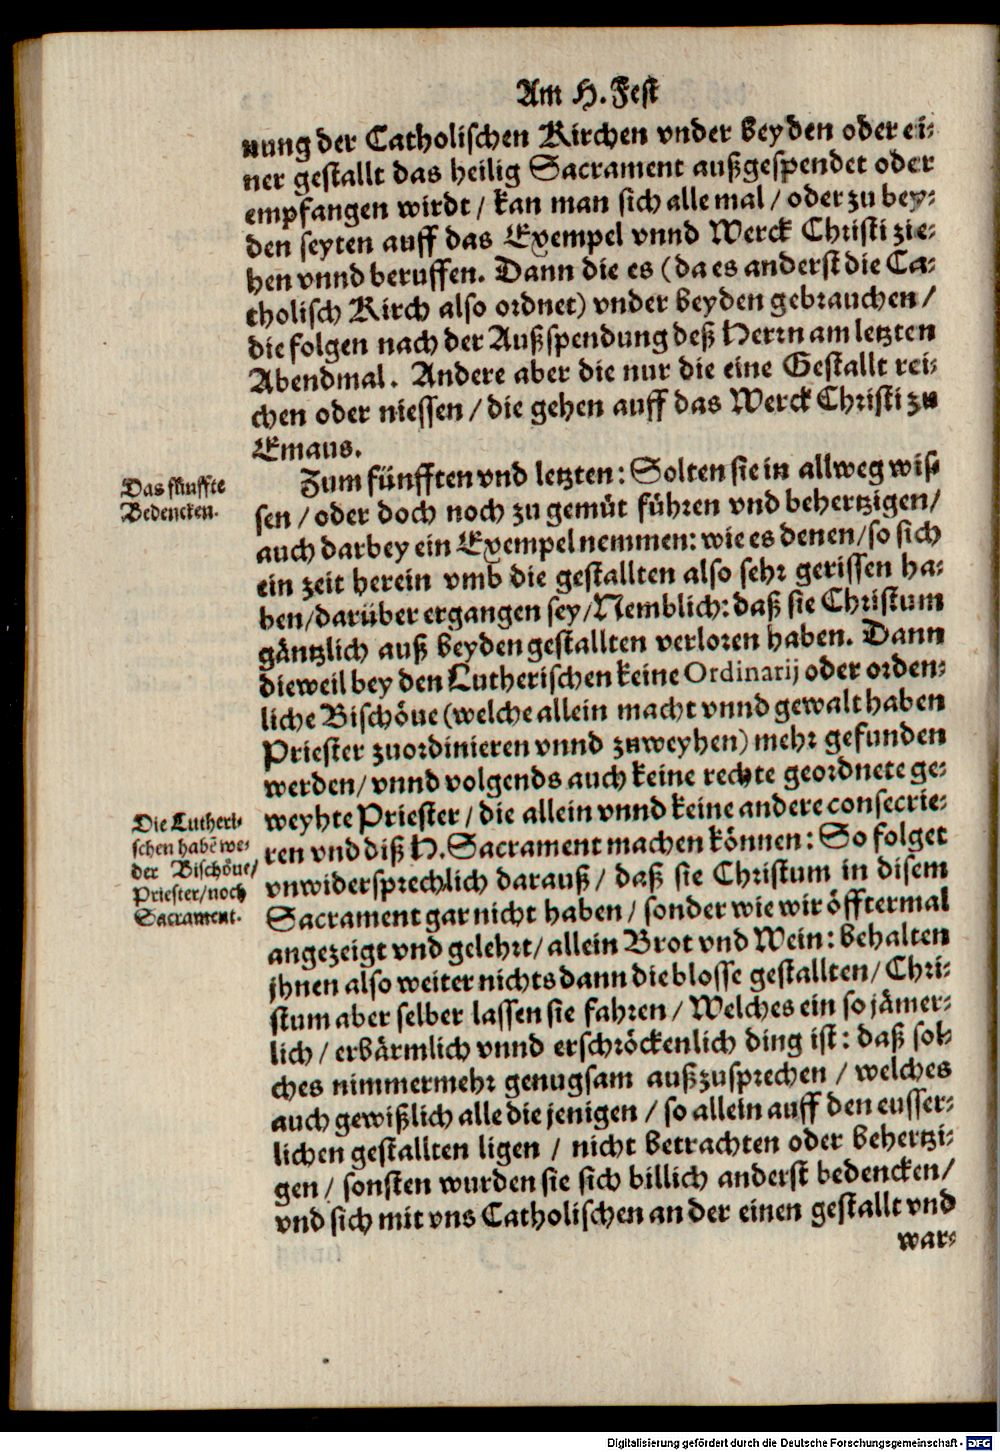 Am H. Fest
nung der Catholischen Kirchen vnder beyden oder ei-
ner gestallt das heilig Sacrament außgespendet oder
empfangen wirdt / kan man sich alle mal / oder zu bey-
den seyten auff das Exempel vnnd Werck Christi zie-
hen vnnd beruffen. Dann die es (da es anderst die Ca-
tholisch Kirch also ordnet) vnder beyden gebrauchen /
die folgen nach der Außspendung deß Herrn am letzten
Abendmal. Andere aber die nur die eine Gestallt rei-
chen oder niessen / die gehen auff das Werck Christi zu
Emaus.
Das fünffte
Bedencken.
Zum fünfften vnd letzten: Solten sie in allweg wis-
sen / oder doch noch zu gemüt führen vnd behertzigen /
auch darbey ein Exempel nemmen: wie es denen / so sich
ein zeit herein vmb die gestallten also sehr gerissen ha-
ben / darüber ergangen sey / Nemblich: daß sie Christum
gäntzlich auß beyden gestallten verloren haben. Dann
dieweil bey den Lutherischen keine Ordinarij oder orden-
liche Bischöue (welche allein macht vnnd gewalt haben
Priester zuordinieren vnnd zuweyhen) mehr gefunden
werden / vnnd volgends auch keine rechte geordnete ge-
Die Lutheri-
schen habē we-
der Bischöue /
Priester / noch
Sacrament.
weyhte Priester / die allein vnnd keine andere consecrie-
ren vnd diß H. Sacrament machen können: So folget
vnwidersprechlich darauß / daß sie Christum in disem
Sacrament gar nicht haben / sonder wie wir öfftermal
angezeigt vnd gelehrt / allein Brot vnd Wein: behalten
jhnen also weiter nichts dann die blosse gestallten / Chri-
stum aber selber lassen sie fahren / Welches ein so jämer-
lich / erbärmlich vnnd erschröckenlich ding ist: daß sol-
ches nimmermehr genugsam außzusprechen / welches
auch gewißlich alle die jenigen / so allein auff den eusser-
lichen gestallten ligen / nicht betrachten oder behertzi-
gen / sonsten wurden sie sich billich anderst bedencken /
vnd sich mit vns Catholischen an der einen gestallt vnd
war-
Digitalisierung gefördert durch die Deutsche Forschungsgemeinschaft - DFG